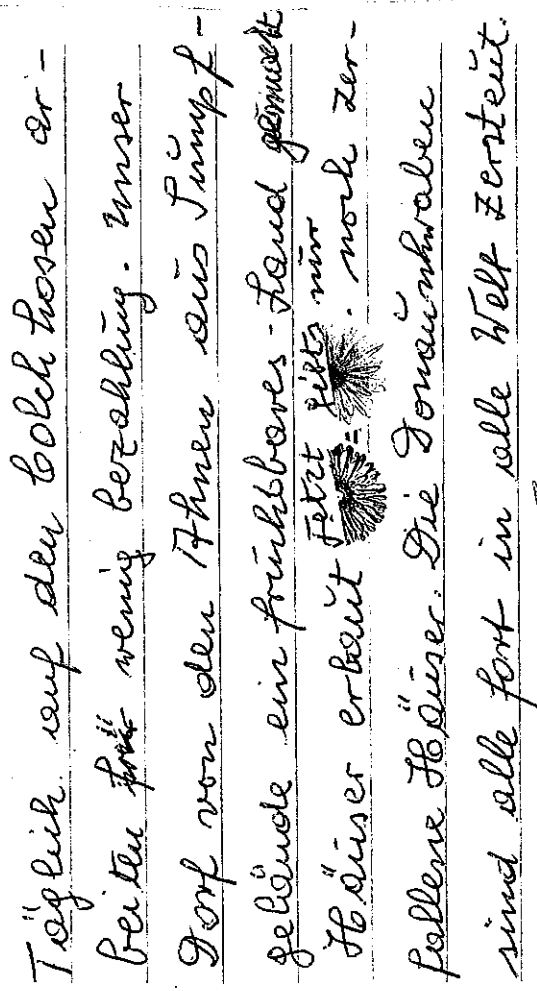 Täglich. auf den Colchhosen ar-
beiten für wenig bezahlung. Unser
Dorf von den Ahnen aus Sumpf-
gelände ein fruchsbares-Land gemacht
Häuser erbaut Jetzt gibts nur noch zer-
fallene Häuser. Die Donauschwaben
sind alle fort in alle Welt zersteut.